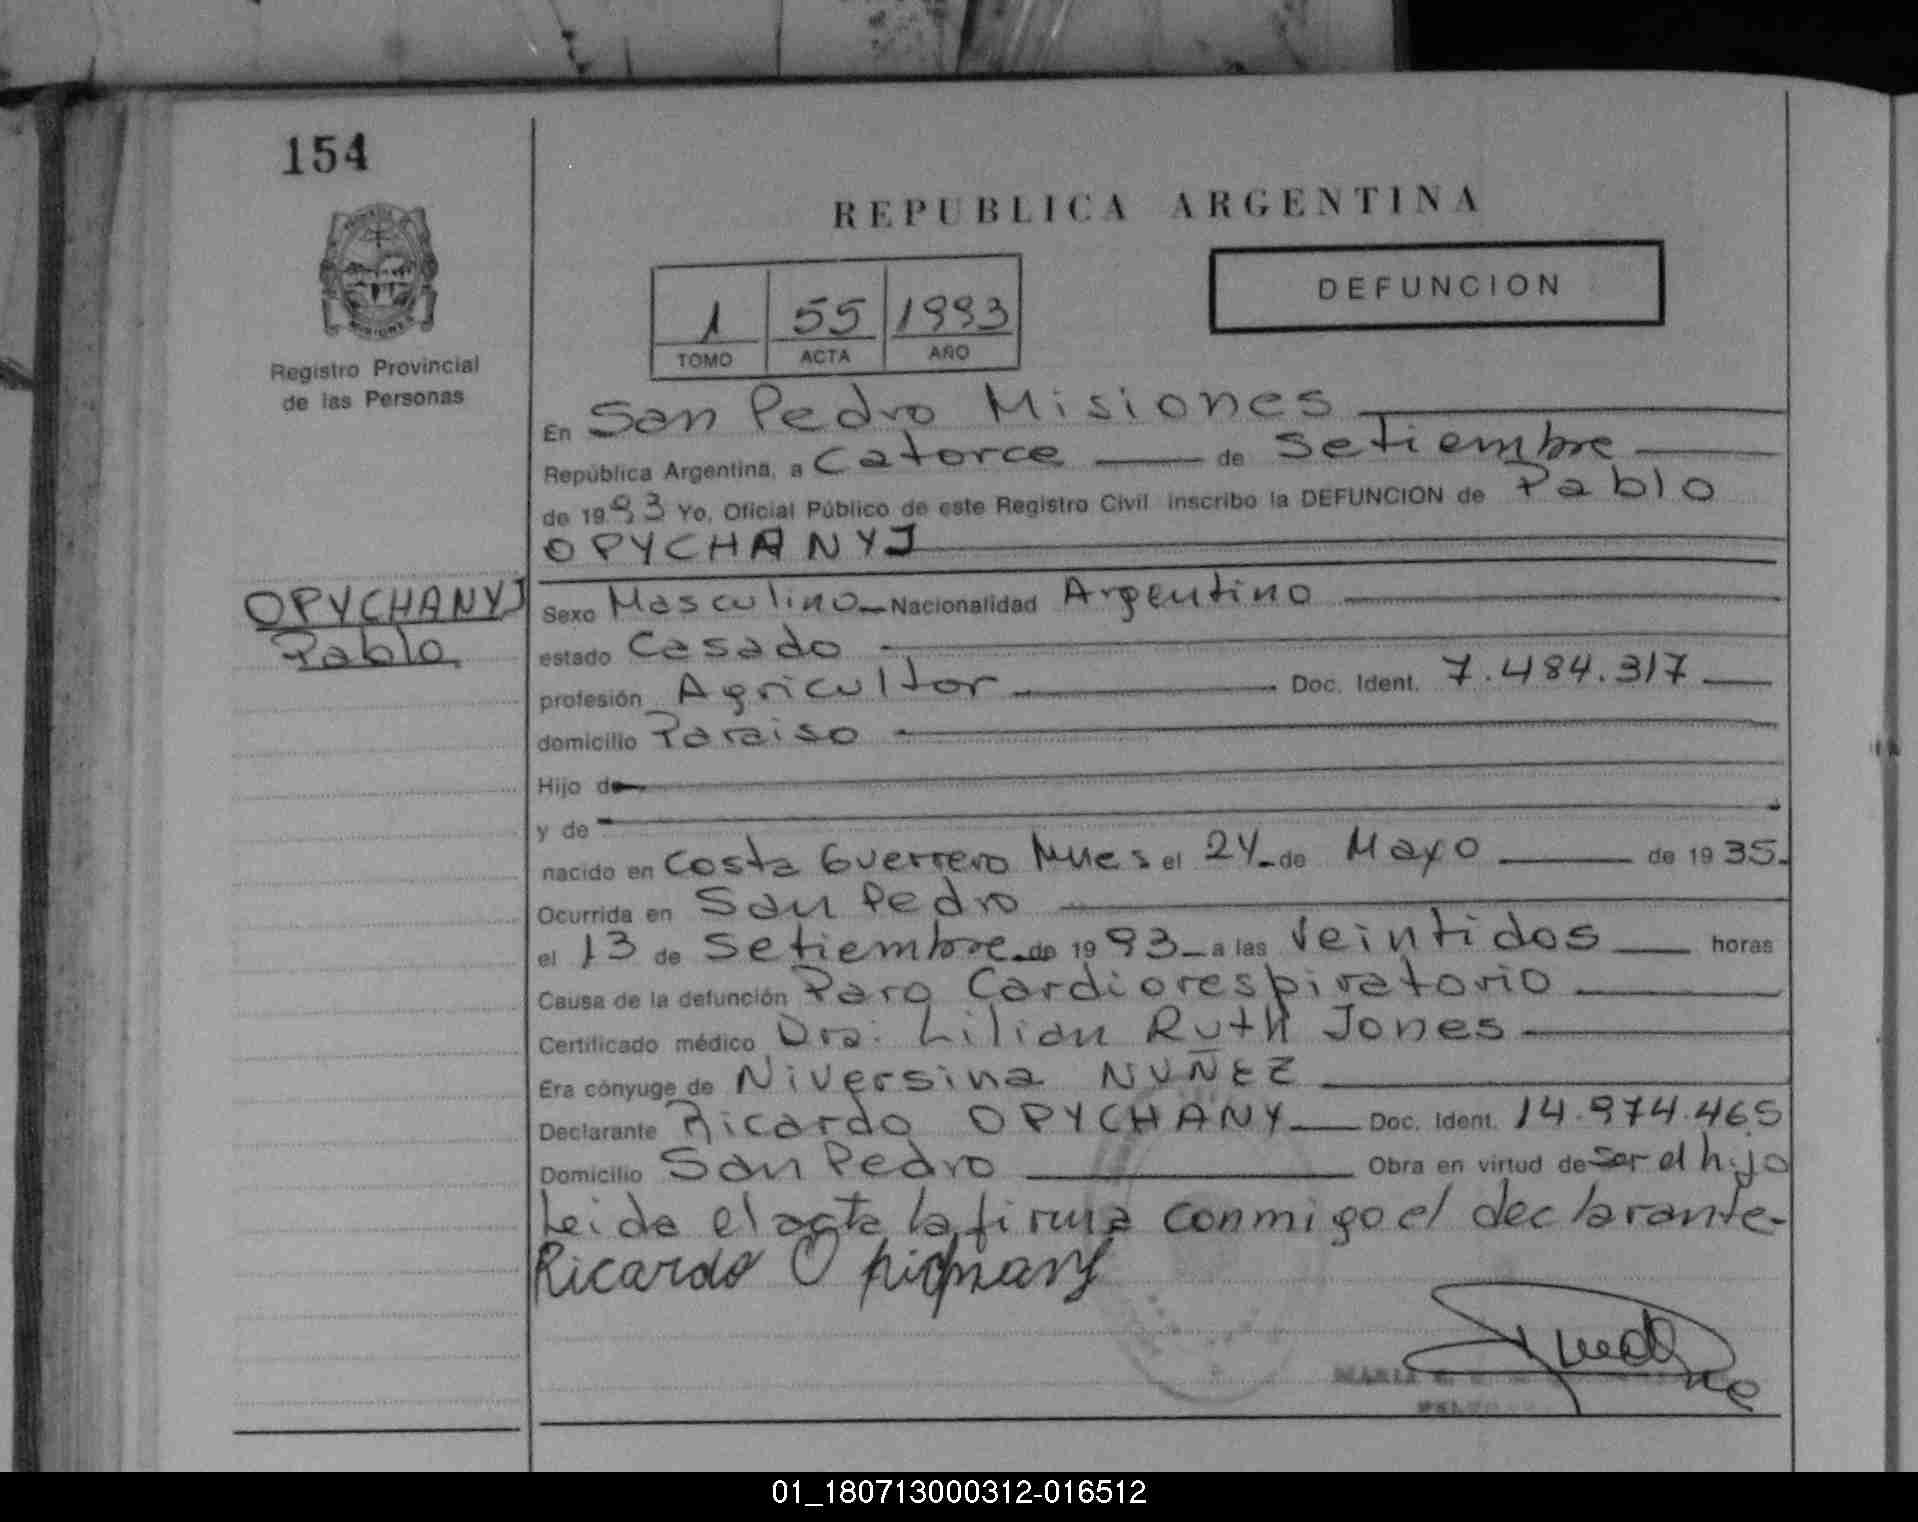 154
REPUBLICA ARGENTINA
MISIONES
Registro Provincial
de las Personas
1 55 1993
TOMO ACTA AÑO
DEFUNCION
En San Pedro Misiones
República Argentina, a Catorce de Setiembre
de 1993 Yo, Oficial Público de este Registro Civil inscribo la DEFUNCION de Pablo
OPYCHANYJ
OPYCHANYJ
Pablo
Sexo Masculino Nacionalidad Argentino
estado Casado
profesión Agricultor Doc. Ident. 7.484.317
domicilio Paraiso
Hijo de
y de
nacido en Costa Guerrero Mnes el 24 de Mayo de 1935.
Ocurrida en San Pedro
el 13 de Setiembre de 1993 a las Veintidos horas
Causa de la defunción Paro Cardiorespiratorio
Certificado médico Dra: Lilian Ruth Jones
Era cónyuge de Niversina NUÑEZ
Declarante Ricardo OPYCHANY Doc. Ident. 14.974.465
Domicilio San Pedro Obra en virtud de ser el hijo
Leida el acta la firma conmigo el declarante-
Ricardo
MARIA
01_180713000312-016512